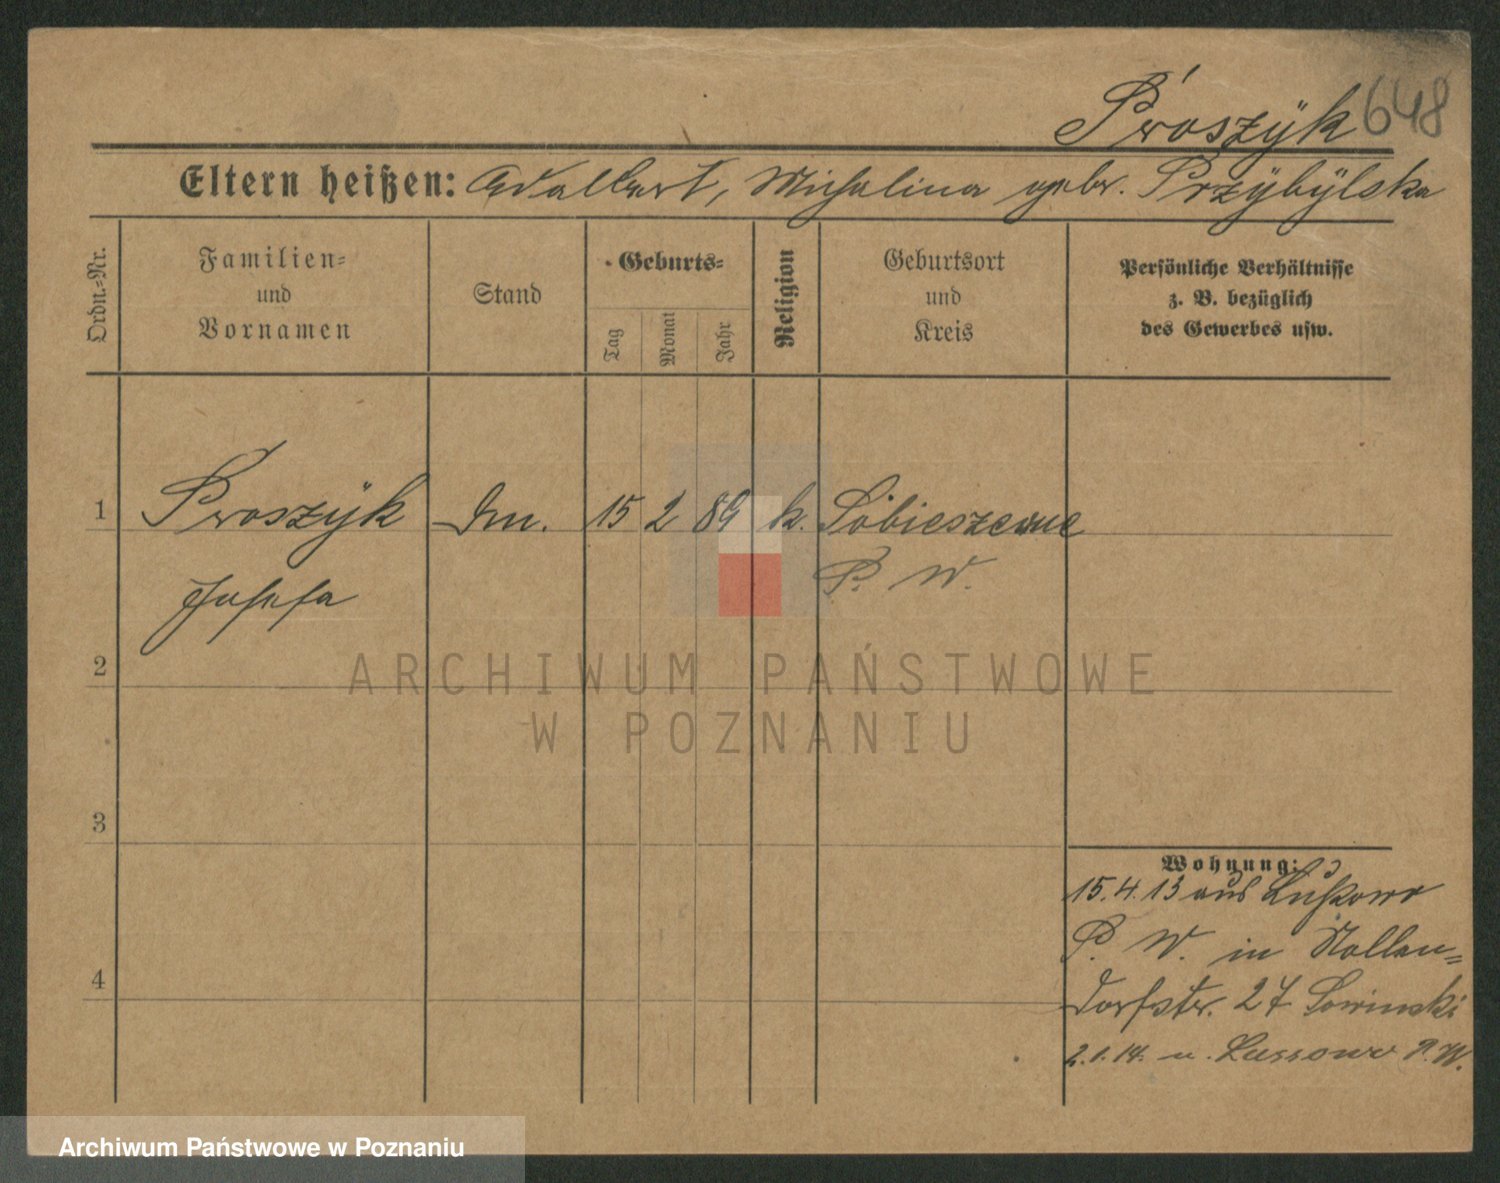 Proszÿk 648
Eltern heißen: Adalbert, Michalina gebr. Przÿbÿlska
Ordn.-Nr.
Familien-
und
Vornamen
Stand
Geburts-
Tag
Monat
Jahr
Religion
Geburtsort
und
Kreis
Persönliche Verhältnisse
z. B. bezüglich
des Gewerbes usw.
1 Proszÿk Dm. 15 2 89 k. Sobieszerne
Josefa P. W.
2
ARCHIWUM PAŃSTWOWE
W POZNANIU
3
Wohnung:
15.4.13 aus Lußowo
P. W. in Nollen=
4
dorfstr. 27 Sowinski
2.1.14. n. Lussowo P. W.
Archiwum Państwowe w Poznaniu